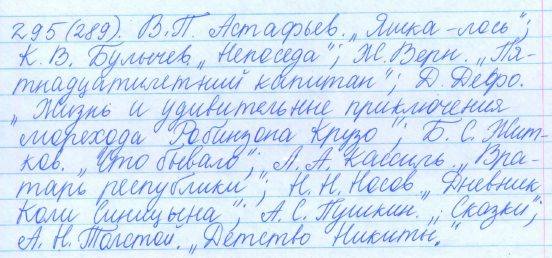 295(289). В.П. Астафьев. „Яшка-лось";
К. В. Булычев „Непоседа"; Ж. Верн. „Пя-
тнадцатилетний капитан"; Д. Дефо.
„Жизнь и удивительные приключения
морехода Робинзона Крузо"; Б. С. Жит-
ков. „Что бывало"; Л. А. Кассиль. „Вра-
тарь республики"; Н. Н. Носов „Дневник
Коли Синицына"; А. С. Пушкин. „Сказки";
А. Н. Толстой. „Детство Никиты."